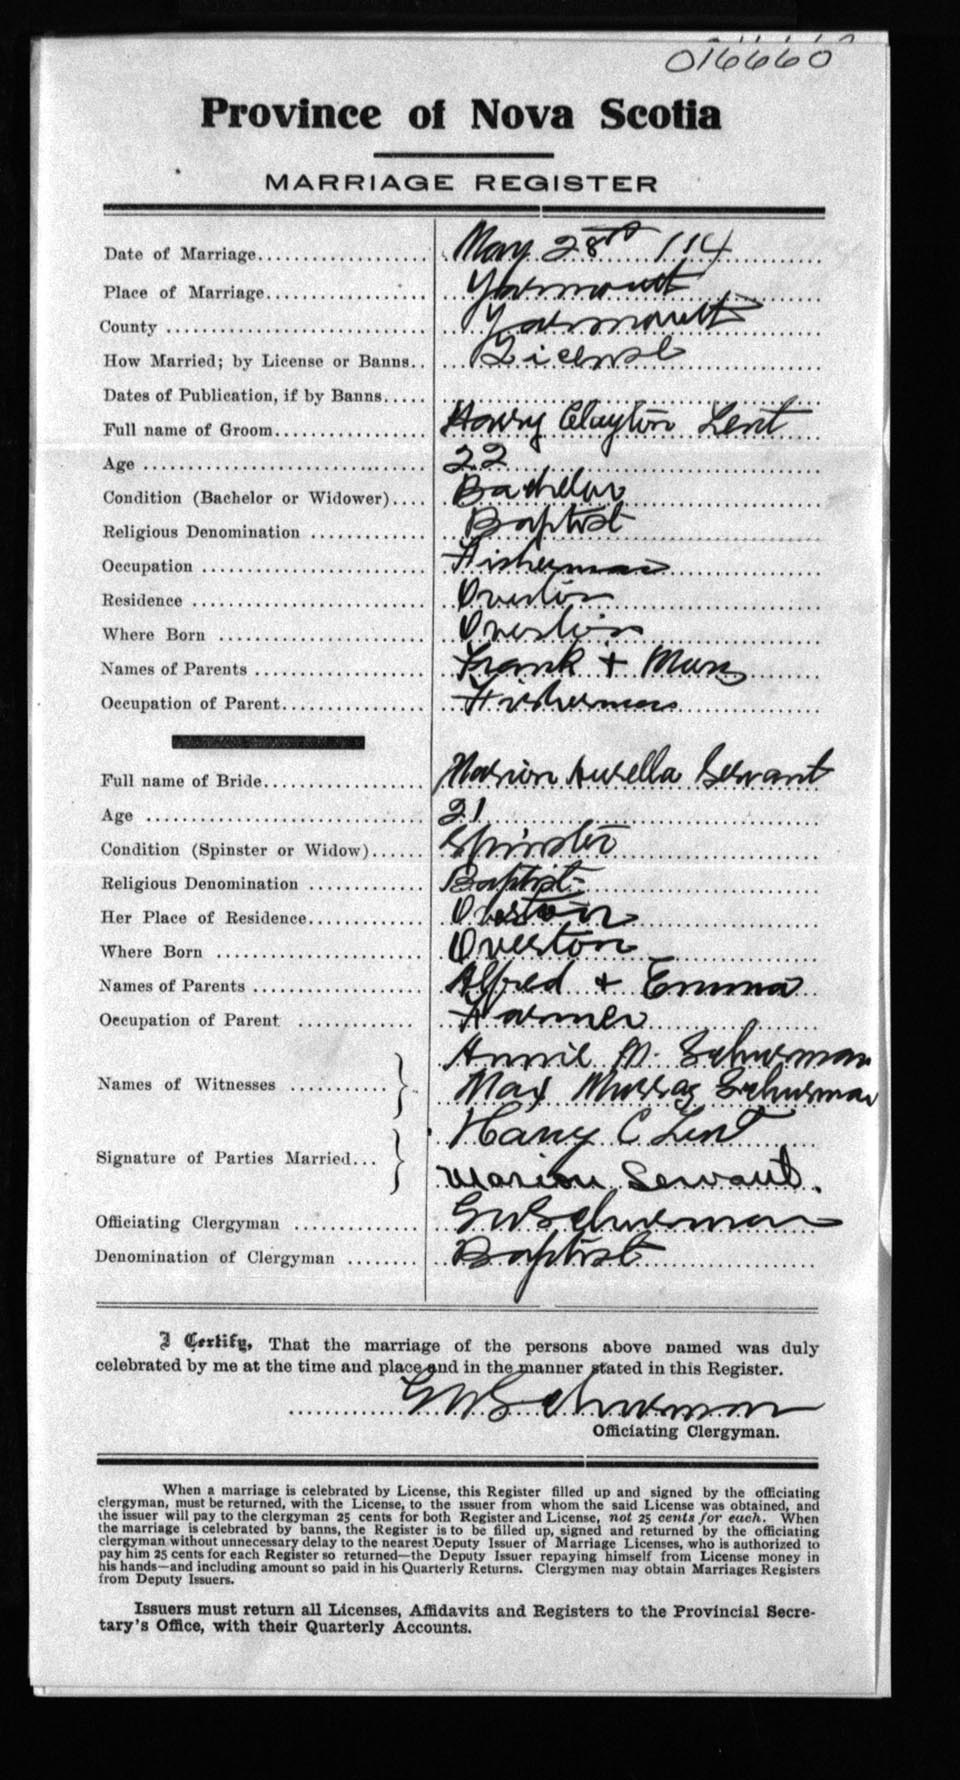 016660
Province of Nova Scotia
MARRIAGE REGISTER
Date of Marriage.................... May 28th 1914
Place of Marriage.................... Yarmouth
County .................... Yarmouth
How Married; by License or Banns.. License
Dates of Publication, if by Banns.....
Full name of Groom.................... Harry Clayton Lent
Age .................... 22
Condition (Bachelor or Widower).... Bachelor
Religious Denomination .................... Baptist
Occupation .................... Fisherman
Residence .................... Overton
Where Born .................... Overton
Names of Parents .................... Frank + Mary
Occupation of Parent.................... Fisherman
Full name of Bride.................... Marion Aurella Servant
Age .................... 21
Condition (Spinster or Widow)...... Spinster
Religious Denomination .................... Baptist
Her Place of Residence.................... Overton
Where Born .................... Overton
Names of Parents .................... Alfred + Emma
Occupation of Parent .................... Farmer
Names of Witnesses .................... Annie M. Schurman
Max Murray Schurman
Signature of Parties Married... Harry C Lent
Marion Servant.
Officiating Clergyman .................... G W Schurman
Denomination of Clergyman ........ Baptist
I Certify, That the marriage of the persons above named was duly
celebrated by me at the time and place and in the manner stated in this Register.
G W Schurman
Officiating Clergyman.
When a marriage is celebrated by License, this Register filled up and signed by the officiating
clergyman, must be returned, with the License, to the issuer from whom the said License was obtained, and
the issuer will pay to the clergyman 25 cents for both Register and License, not 25 cents for each. When
the marriage is celebrated by banns, the Register is to be filled up, signed and returned by the officiating
clergyman without unnecessary delay to the nearest Deputy Issuer of Marriage Licenses, who is authorized to
pay him 25 cents for each Register so returned—the Deputy Issuer repaying himself from License money in
his hands—and including amount so paid in his Quarterly Returns. Clergymen may obtain Marriages Registers
from Deputy Issuers.
Issuers must return all Licenses, Affidavits and Registers to the Provincial Secre-
tary's Office, with their Quarterly Accounts.